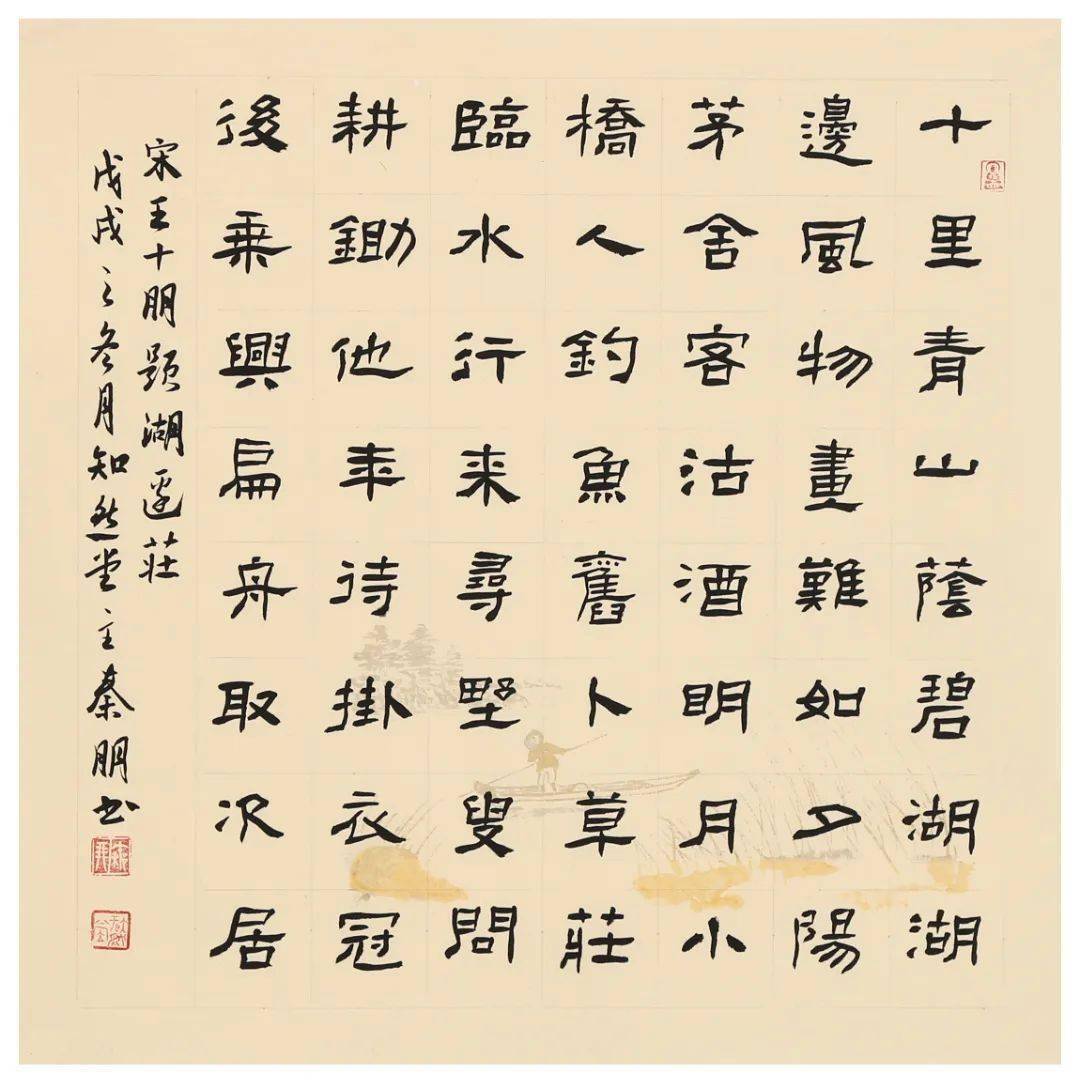 十里青山蔭碧湖湖
邊風物畫難如夕陽
茅舍客沽酒明月小
橋人釣魚舊卜草莊
臨水行来尋野叟問
耕鋤他年待掛衣冠
後乘興扁舟取次居
宋王十朋題湖邊莊
戊戌之冬月知然堂主秦朋书